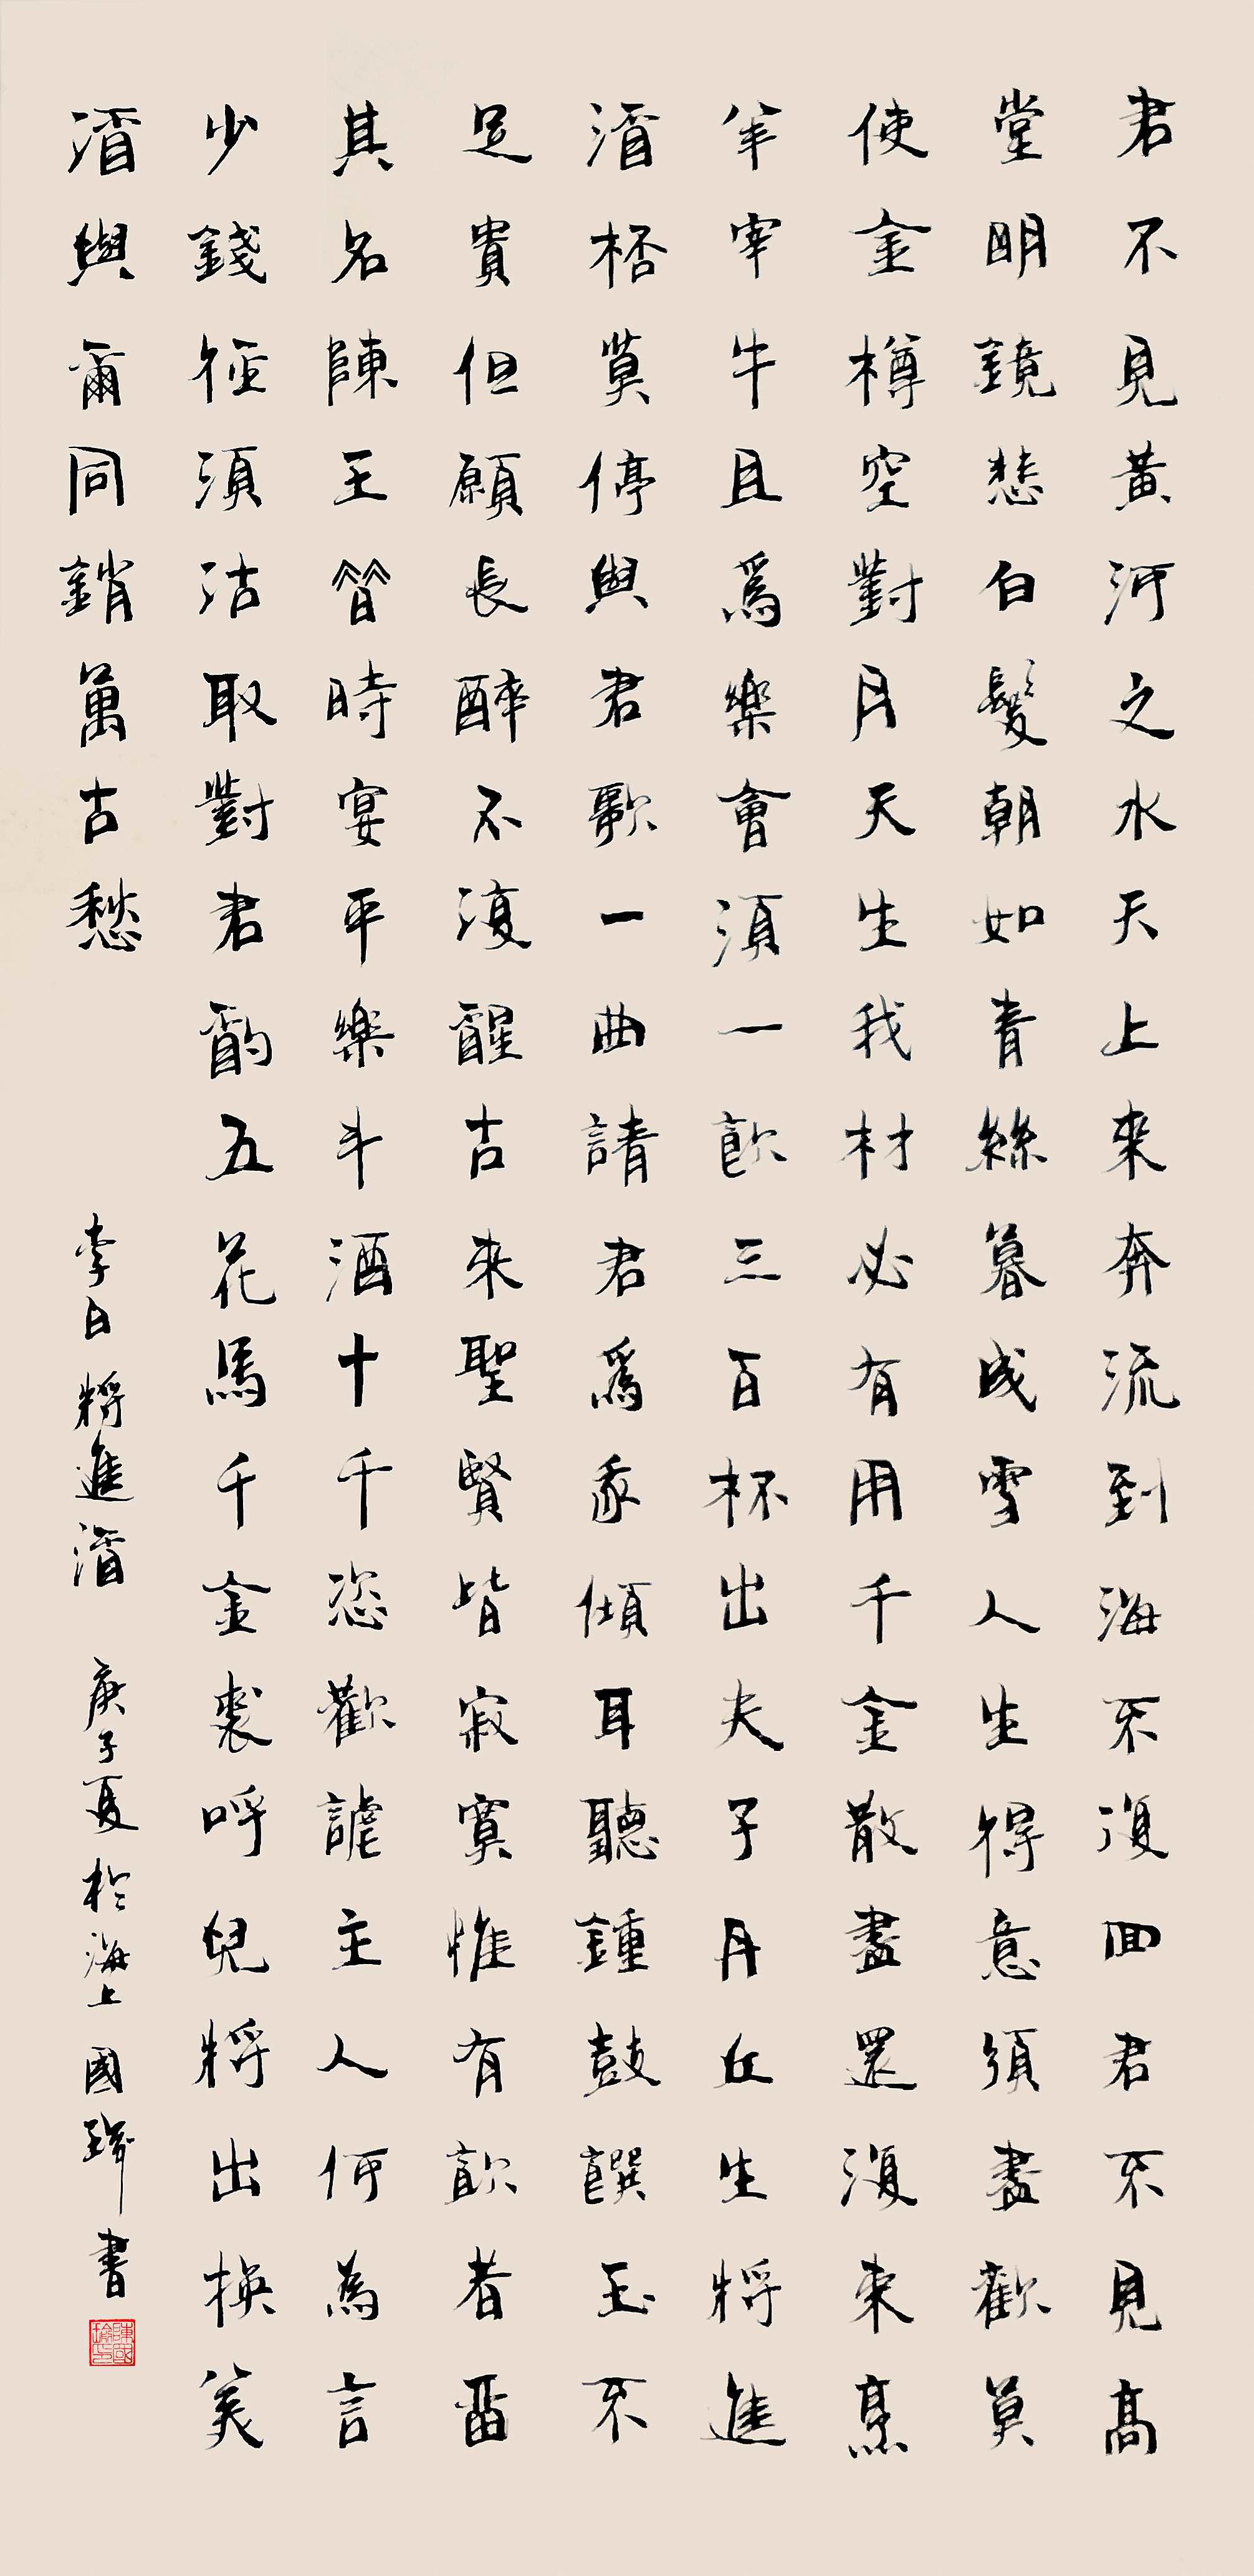 君不見黃河之水天上來奔流到海不復回君不見高
堂明鏡悲白髮朝如青絲暮成雪人生得意須盡歡莫
使金樽空對月天生我材必有用千金散盡還復來烹
羊宰牛且爲樂會須一飲三百杯出夫子丹丘生將進
酒桮莫停與君歌一曲請君爲我傾耳聽鍾鼓饌玉不
足貴但願長醉不復醒古來聖賢皆寂寞惟有飲者留
其名陳王昔時宴平樂斗酒十千恣歡謔主人何為言
少錢徑須沽取對君酌五花馬千金裘呼兒將出換美
酒與爾同銷萬古愁
李白 將進酒 庚子夏於海上 國 書